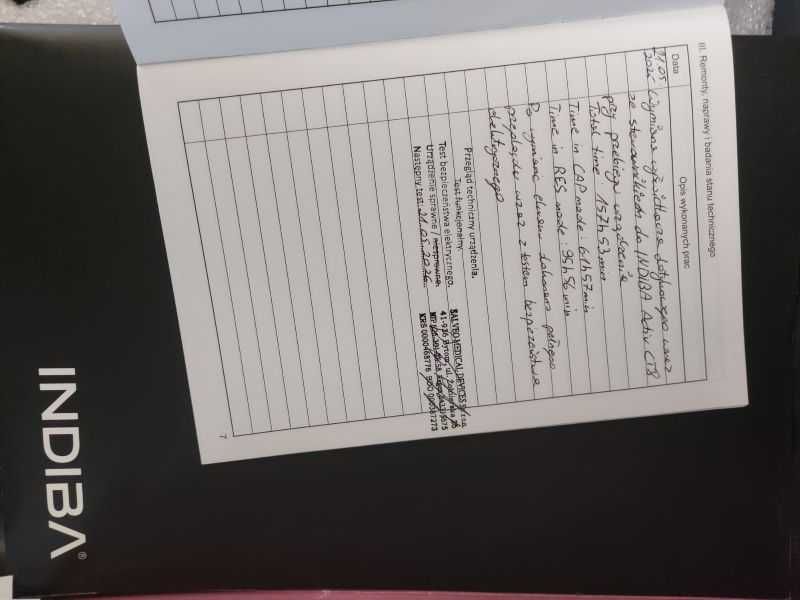 III. Remonty, naprawy i badania stanu technicznego
Data
Opis wykonanych prac
21.05
Wymiana wyświetlacza dotykowego wraz
ze sterownikiem do INDIBA Activ CT8
przy przebiegu urządzenia
Total time: 157h 53min
Time in CAP mode: 61h 57min
Time in RES mode: 95h 56min
Po wymianie ekranu dokonano pełnego
przeglądu wraz z testem bezpieczeństwa
elektrycznego
Przegląd techniczny urządzenia.
Test funkcjonalny.
Test bezpieczeństwa elektrycznego.
Urządzenie sprawne / niesprawne.
Następny test: 21.05.2026
SALVEO MEDICAL DEVICES
KRS 0000468776
7
INDIBA®